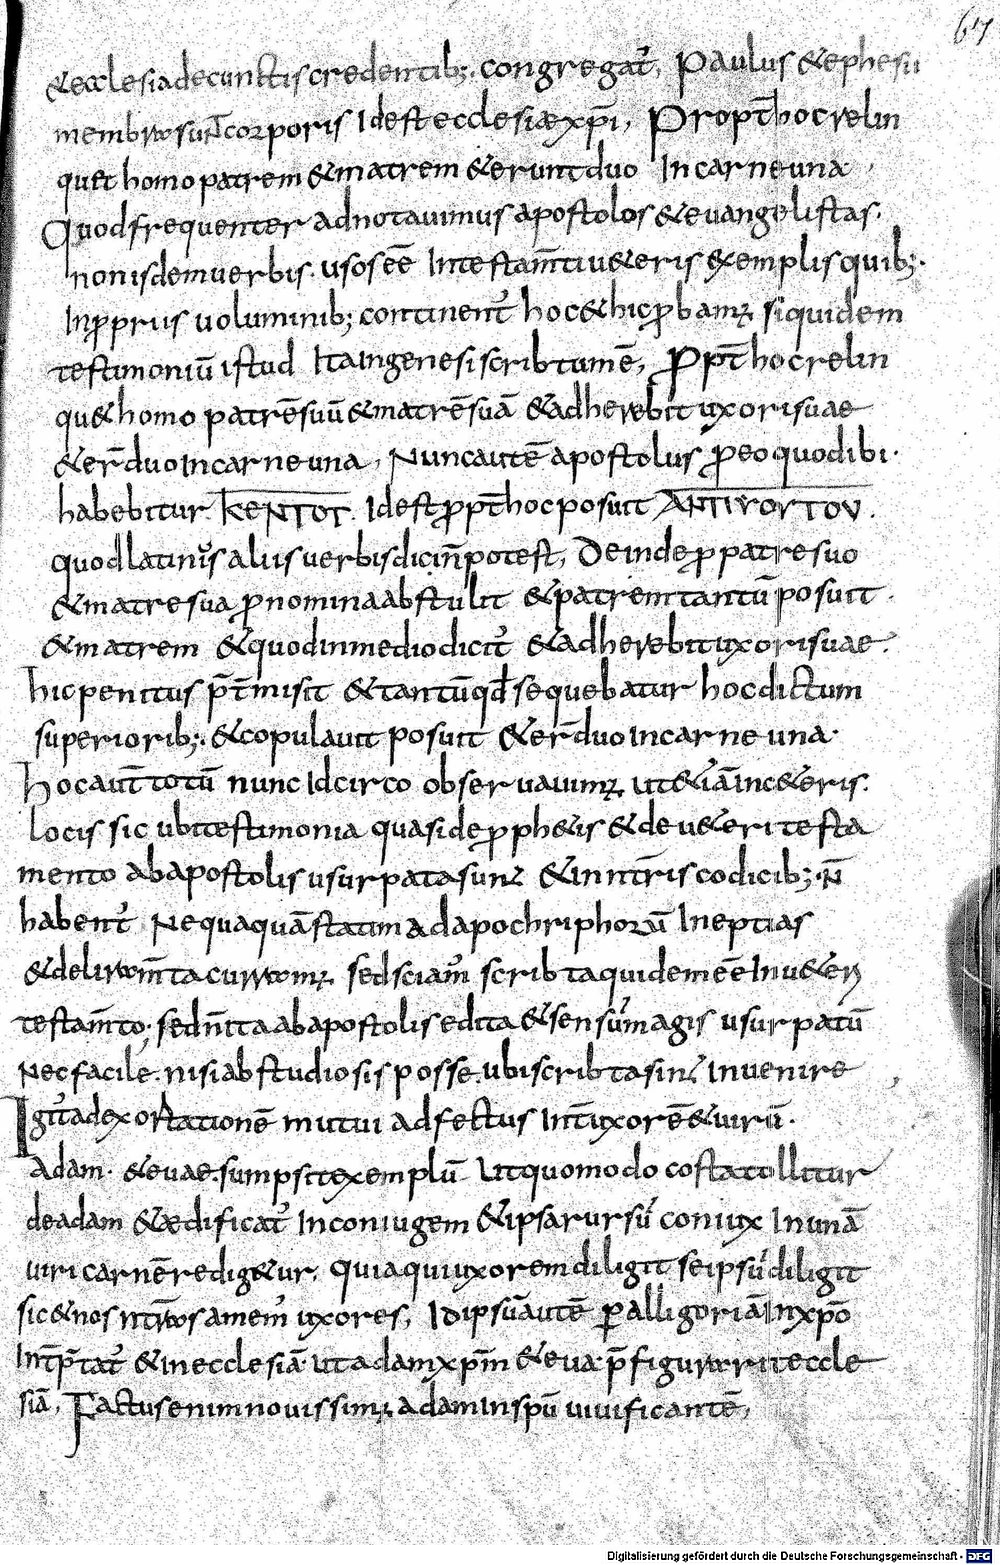 67
& ecclesia de cunctis credentib; congregat̃, Paulus & ephesii
membra sunt corporis Id est ecclesiae xp̄i, Propt̄ hoc relin
quet homo patrem & matrem & erunt duo In carne una
Quod frequenter adnotauimus apostolos & euangelistas.
non isdem uerbis. usos ēē In testam̄ti u&eris exemplis quib;.
In ꝓpriis uoluminib; continent̃ hoc & hic ꝓbamꝰ siquidem
testimoniū istud Ita In genesi scribtum ē, Ꝓpt̄ hoc relin
qu& homo patrē suū & matrē suā & adherebit uxori suae
& er̄ duo In carne una, Nunc autē apostolus ꝓ eo quod ibi.
habebitur. Id est ꝓpt̄ hoc posuit
quod latinis aliis uerbis dici n̄ potest, Deinde ꝓ patre suo
& matre sua ꝓnomina abstulit & patrem tantū posuit.
& matrem & quod in medio dicit̃ & adherebit uxori suae.
hic penitus p̄t̄misit & tantū qđ sequebatur hoc dictum
superiorib;. & copulauit posuit & er̄ duo In carne una.
hoc aut̄ totū nunc Idcirco obseruauimꝰ ut &iā In c&eris.
locis sicubi testimonia quasi de ꝓph&is & de u&eri testa
mento ab apostolis usurpata sunt & in nr̄is codicib;. n̄
habent̃ Nequaquā statim ad apochriphorū Ineptias
& deliram̄ta curramꝰ sed sciam̃ scribta quidem ēē In u&eri
testam̄to; sed n̄ ita ab apostolis edita & sensum̃ magis usurpatū
Nec facile. nisi ab studiosis posse. ubi scribta sint Inuenire
Igit̃ ad exortationē mutui adfectus Int̄ uxorē & uirū.
adam. & euae. sumpsit exemplū Ut quomodo costa tollitur
de adam & aedificat̃ In coniugem & ipsa rursū coniux In unā
uiri carnē redig&ur. quia qui uxorem diligit se ipsū diligit
sic & nos nr̄as amem̃ uxores, Id ipsū autē ꝑ alligoriā In xp̄o
Int̄p̄tat̃ & In ecclesiā. ut adam xp̄m & eua p̄figurarit eccle
siā, Factus enim nouissimꝰ adam In sp̄ū uiuificantē,
Digitalisierung gefördert durch die Deutsche Forschungsgemeinschaft - DFG